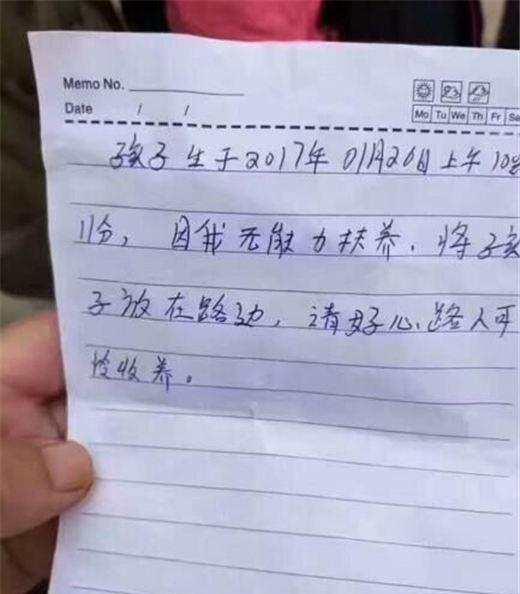 Memo No.
Date / /
Mo Tu We Th Fr Sa
孩子生于2017年01月26日上午10点
11分，因我无能力扶养，将孩
子放在路边，请好心路人可
怜收养。